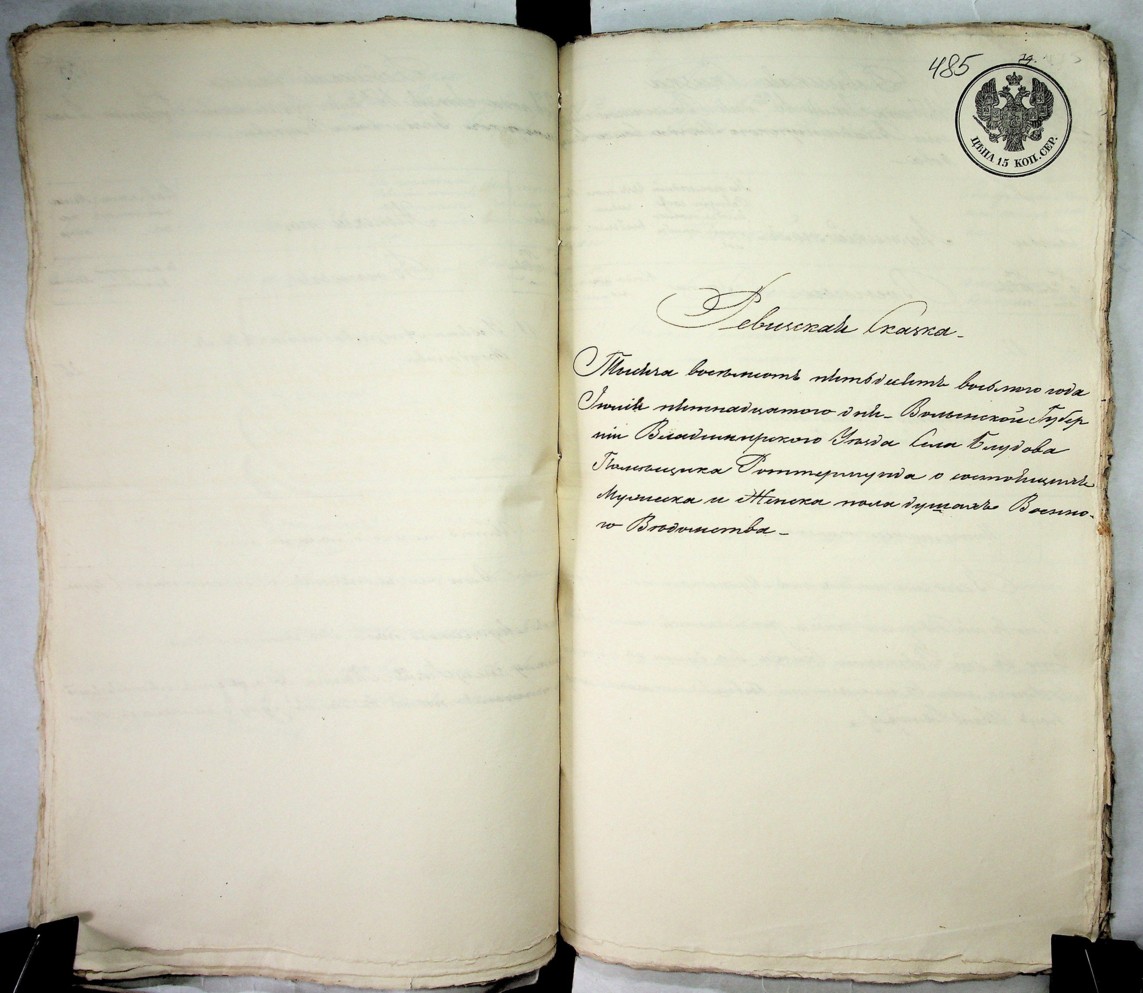 485
ЦѢНА 15 КОП. СЕР.
Ревизская Сказка
Тысяча восемьсотъ пятьдесятъ восьмого года
Іюля пятнадцатого дня Волынской Губер
ніи Владимирского Уѣзда Села Блудова
Помѣщика Роттермунда о состоящихъ
Мужеска и Женска пола душахъ Военно-
го Вѣдомства